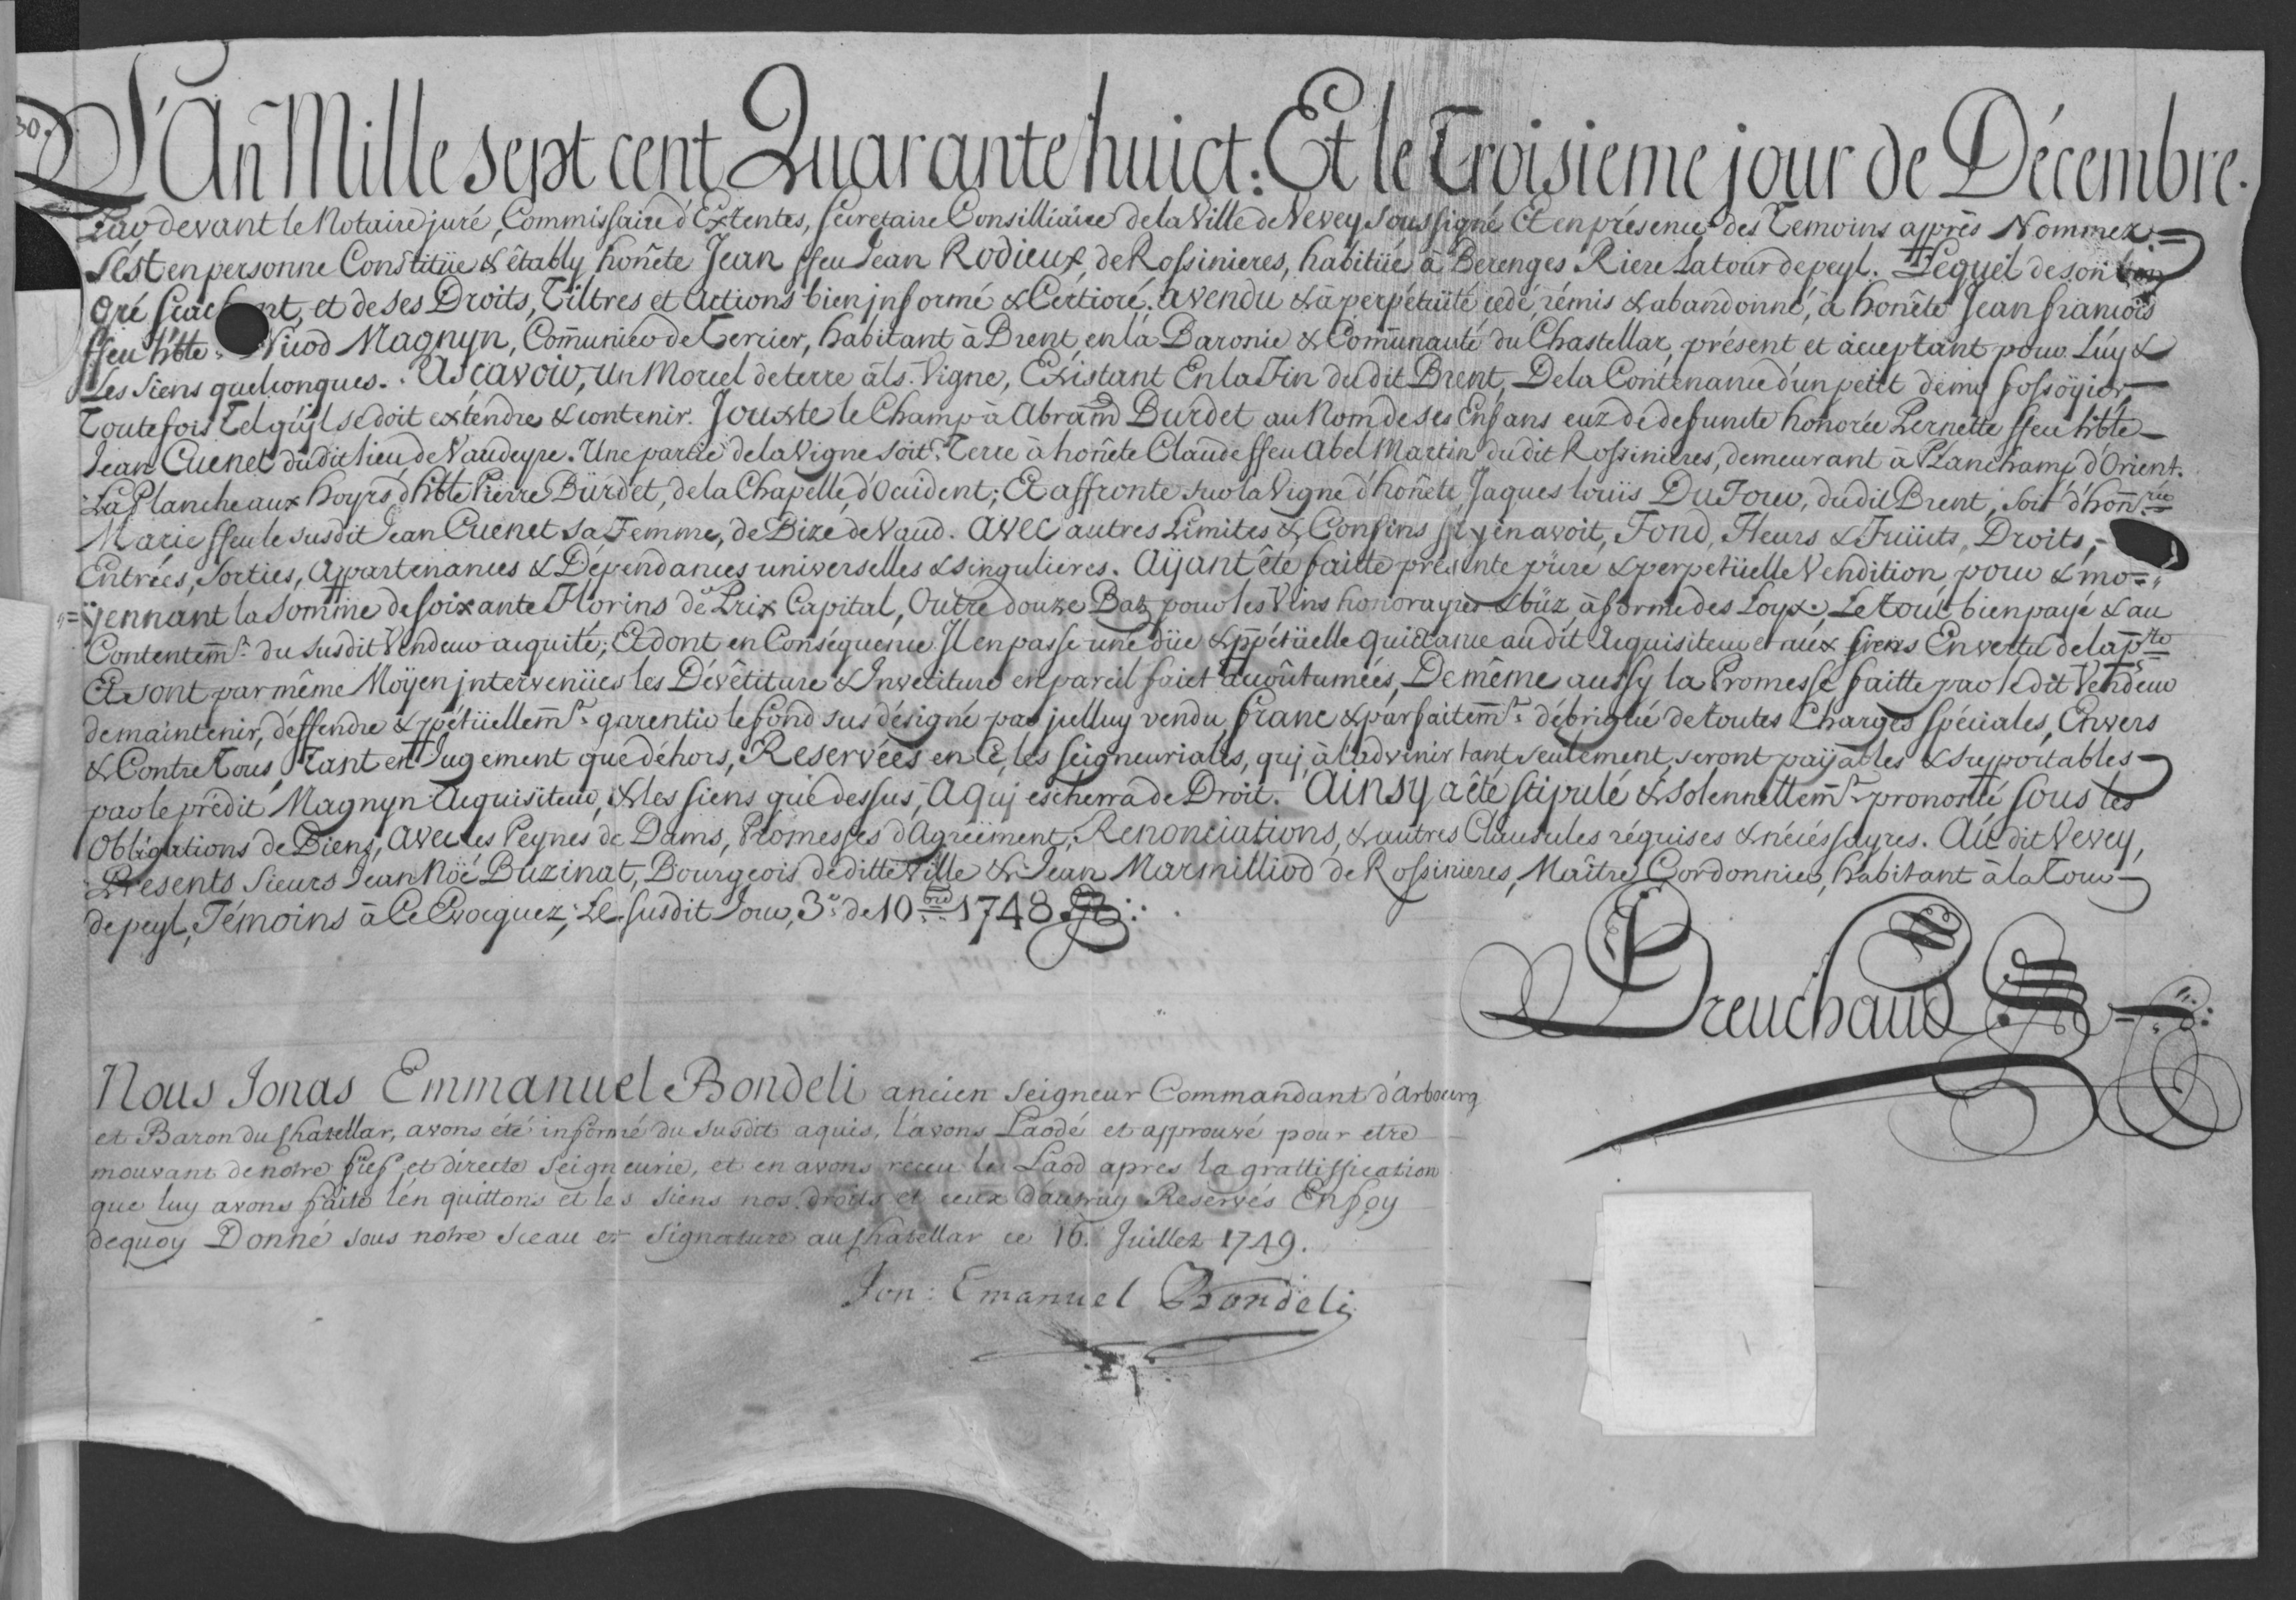 30.
L'An Mille sept cent Quarante huict: Et le Troisieme jour de Décembre.
Par devant le Notaire juré, Commissaire d'Extentes, secretaire Consilliaire de la Ville de Vevey soussigné Et en présence des Temoins apprès Nommez =
S'ést en personne Constitüe & êtably honête Jean ffeu Jean Rodieux, de Rossinieres, habitüé à Berenges Riere La tour de peyl. Lequel de son bon
Gré scach nt, et de ses Droits, Tiltres et Actions bien jnformé & Certioré, a vendu & à perpétuité, cedé, rémis & abandonné, à honête Jean francois
ffeu hble Nicod Magnyn, Comunier de Tercier, habitant à Brent, en la Baronie & Comunauté du Chastellar, présent et àcceptant pour Lüy &
Les siens quelconques. Ascavoir, un Morcel de terre àls. Vigne, Existant En la Fin du dit Brent, De la Contenance d'un petit demy fossoÿier,
Toutefois Tel qu'jl se doit extendre & contenir. Jouxte le Champ à Abram Burdet au Nom de ses Enfans euz de defuncte honorée Pernette ffeu hble
Jean Cuenet du dit lieu, de Vaudeyre. Une partie de la Vigne soit Terre à honête Claude ffeu Abel Martin du dit Rossinieres, demeurant à Planchamp d'Orient.
La Planche aux hoyrs d'hble Pierre Bürdet, de la Chapelle, d'Occident; Et affronte sur la Vigne d'honête Jaques loüis DuFour, du dit Brent, soit d'hon.rée
Marie ffeu le susdit Jean Cuenet sa Femme, de Bize de Vaud. Avec autres Limites & Confins sy en avoit, Fond, Fleurs & Fruiits, Droits,
Entrées, Sorties, Appartenances & Dépendances universelles & singulieres. Aÿant êté faitte présente püre & perpetüelle Vendition, pour & mo=
=ÿennant la somme de soixante Florins de Prix Capital, Outre douze Batz pour les Vins honorayres & büz, à forme des Loyx; Le tout bien payé & au
Contentemt. du susdit Vendeur acquité; Et dont en Conséquence Jl en passe une düe & ppétüelle quictance au dit Acquisiteur et aux siens En vertu de la pnte
Et sont par même Moÿen jntervenües les Dévêtiture & Jnvetiture en pareil faict accoûtumées, De même aussy la Promesse faitte par le dit Vendeur
de maintenir, déffendre & ppétüellemt. garentir le fond sus désigné par jcelluy vendu, franc & parfaitemt. débrigüé de toutes Charges spéciales, Envers
& Contre Tous, Tant en Jugement que déhors, Reservées en Ce, les seigneuriales, quj à l'advenir tant seulement, seront payables & supportables
par le prédit Magnyn Acquisiteur, & les siens que dessus, A quj escherra de Droit. Ainsy a êté stipulé & solennellemt. prononcé sous les
Obligations de Biens, avec les Peynes de Dams, Promesses d'Agréement, Renonciations, & autres Clausules réquises & nécéssayres. Au dit Vevey,
Présents sieurs Jean Nöé Buzinat, Bourgeois de ditte Ville & Jean Marmilliod de Rossinieres, Maître Cordonnier, habitant à la Tour
de peyl, Témoins à Ce Evocquez; Le susdit Jour, 3e. de 10bre 1748
Preuchaud
Nous Jonas Emmanuel Bondeli ancien Seigneur Commandant d'Arbourg
et Baron du Chatellar, avons été informé du susdit aquis, l'avons Laodé et approuvé pour etre
mouvant de notre fief et directe Seigneurie, et en avons receu le Laod apres la grattiffication
que luy avons faite l'en quittons et les siens nos droits et ceux d'autruy Reservés En foy
dequoy Donné sous notre sceau et signature au Chatellar ce 16. Juillet 1749.
Jon: Emanuel Bondeli